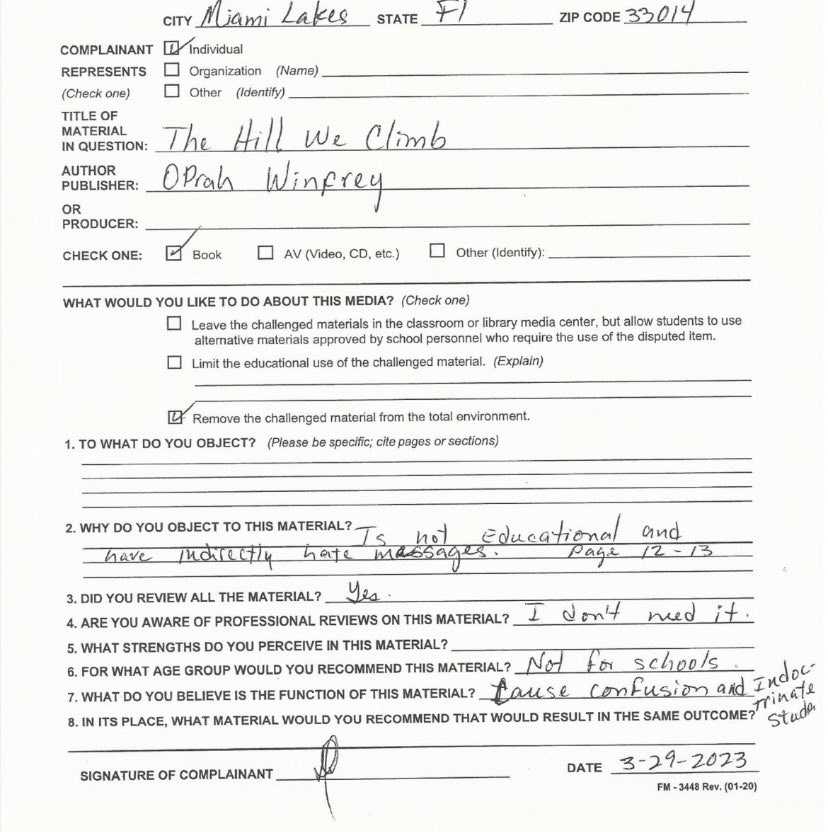 CITY Miami Lakes STATE Fl ZIP CODE 33014
COMPLAINANT Individual
REPRESENTS Organization (Name)
(Check one) Other (Identify)
TITLE OF
MATERIAL
IN QUESTION: The Hill We Climb
AUTHOR
PUBLISHER: Oprah Winfrey
OR
PRODUCER:
CHECK ONE: Book AV (Video, CD, etc.) Other (Identify):
WHAT WOULD YOU LIKE TO DO ABOUT THIS MEDIA? (Check one)
Leave the challenged materials in the classroom or library media center, but allow students to use
alternative materials approved by school personnel who require the use of the disputed item.
Limit the educational use of the challenged material. (Explain)
Remove the challenged material from the total environment.
1. TO WHAT DO YOU OBJECT? (Please be specific; cite pages or sections)
2. WHY DO YOU OBJECT TO THIS MATERIAL? Is not Educational and
have indirectly hate massages. Page 12-13
3. DID YOU REVIEW ALL THE MATERIAL? Yes.
4. ARE YOU AWARE OF PROFESSIONAL REVIEWS ON THIS MATERIAL? I don't need it.
5. WHAT STRENGTHS DO YOU PERCEIVE IN THIS MATERIAL?
6. FOR WHAT AGE GROUP WOULD YOU RECOMMEND THIS MATERIAL? Not for schools.
7. WHAT DO YOU BELIEVE IS THE FUNCTION OF THIS MATERIAL? Cause confusion and Indoc-
trinate
8. IN ITS PLACE, WHAT MATERIAL WOULD YOU RECOMMEND THAT WOULD RESULT IN THE SAME OUTCOME?
SIGNATURE OF COMPLAINANT DATE 3-29-2023
FM - 3448 Rev. (01-20)